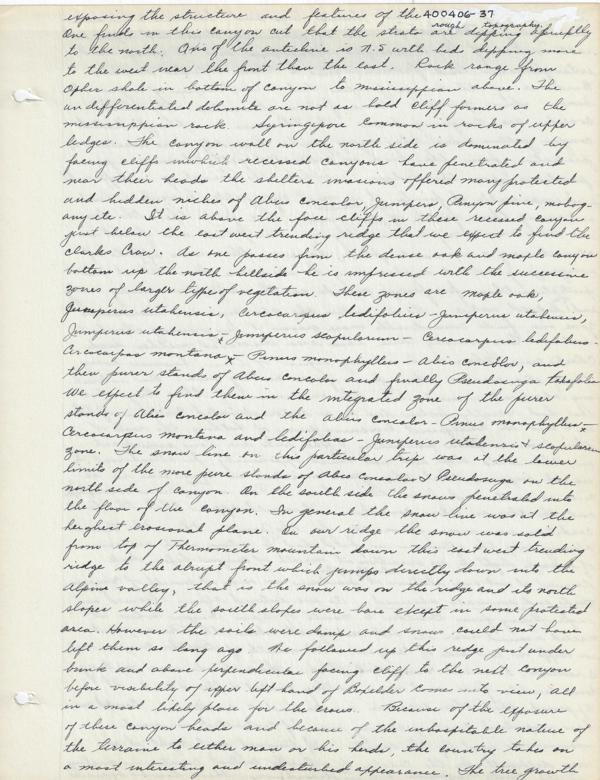 exposing the structure and features of the 400406-37
rough topography.
One finds in this canyon cut that the strata are dipping abruptly
to the north. Axis of the anticline is N.S with bed dipping more
to the west near the front than the east. Rock range from
Opher shale in bottom of canyon to mississippian above. The
undifferentiated dolomite are not as bold cliff formers as the
mississippian rock. Syringapore common in rocks of upper
ledges. The canyon wall on the north side is dominated by
facing cliffs in which recessed canyons have penetrated and
near their heads the shelters invasions offered many protected
and hidden niches of Abies concolor, Junipers, Pinyon pine, mahog-
any etc. It is above the face cliffs in these recessed canyon
just below the east west trending ridge that we expect to find the
Clarks Crow. As one passes from the dense oak and maple canyon
bottom up the north hillside he is impressed with the successive
zones of larger type of vegetation. These zones are maple oak,
Juniperus utahensis, Cercocarpus ledifolius - Juniperus utahensis,
Juniperus utahensis x Juniperus scopulorum - Cercocarpus ledifolius -
Cercocarpos montana x - Pinus monophyllus - Abis concolor, and
then purer stands of Abies concolor and finally Pseudosuga taxafolia
We expect to find them in the integrated zone of the purer
stands of Abies concolor and the abies concolor - Pinus monophyllus x -
Cercocarpus montana and ledifolias - Juniperus utahensis & scopulorum
zone. The snow line on this particular trip was at the lower
limits of the more pure stands of Abies concolor & Pseudosuga on the
north side of canyon. On the south side the snows penetrated into
the floor of the canyon. In general the snow line was at the
heighest erosional plane. On our ridge the snow was solid
from top of Thermometer mountain down this east west trending
ridge to the abrupt front which jumps directly down into the
Alpine valley, that is the snow was on the ridge and its north
slopes while the south slopes were bare except in some protected
area. However the soils were damp and snows could not have
left them so long ago. We followed up this ridge just under
bank and above perpendicular facing cliff to the next canyon
before visibility of upper left hand of Boxelder comes into view, all
in a most likely place for the crows. Because of the exposure
of these canyon heads and because of the inhospitable nature of
the terraine to either man or his herds, the country takes on
a most interesting and undisturbed appearance. The tree growth